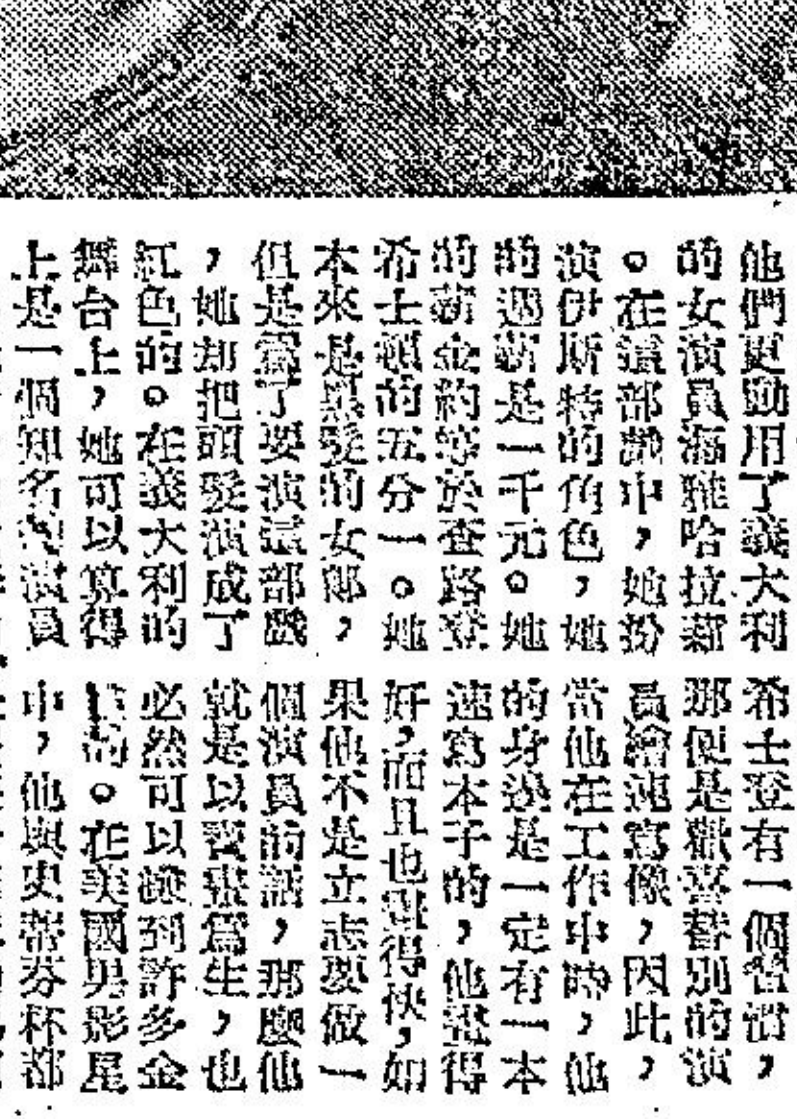 他們更動用了義大利
的女演員海雅哈拉
。在這部戲中，她扮
演伊斯特的角色，她
的週薪是一千元。她
的薪金約等於查路登
希士頓的五分一。她
本來是黑髮的女郎，
但是爲了要演這部戲
，她却把頭髮演成了
紅色的。在義大利的
舞台上，她可以算得
上是一個知名的演員
希士登有一個習慣，
那便是歡喜替別的演
員繪速寫像，因此，
當他在工作中時，他
的身邊是一定有一本
速寫本子的，他畫得
好，而且也畫得快，如
果他不是立志要做一
個演員的話，那麼他
就是以賣畫爲生，也
必然可以賺到許多金
的。在美國男影星
中，他與史蒂芬杯都